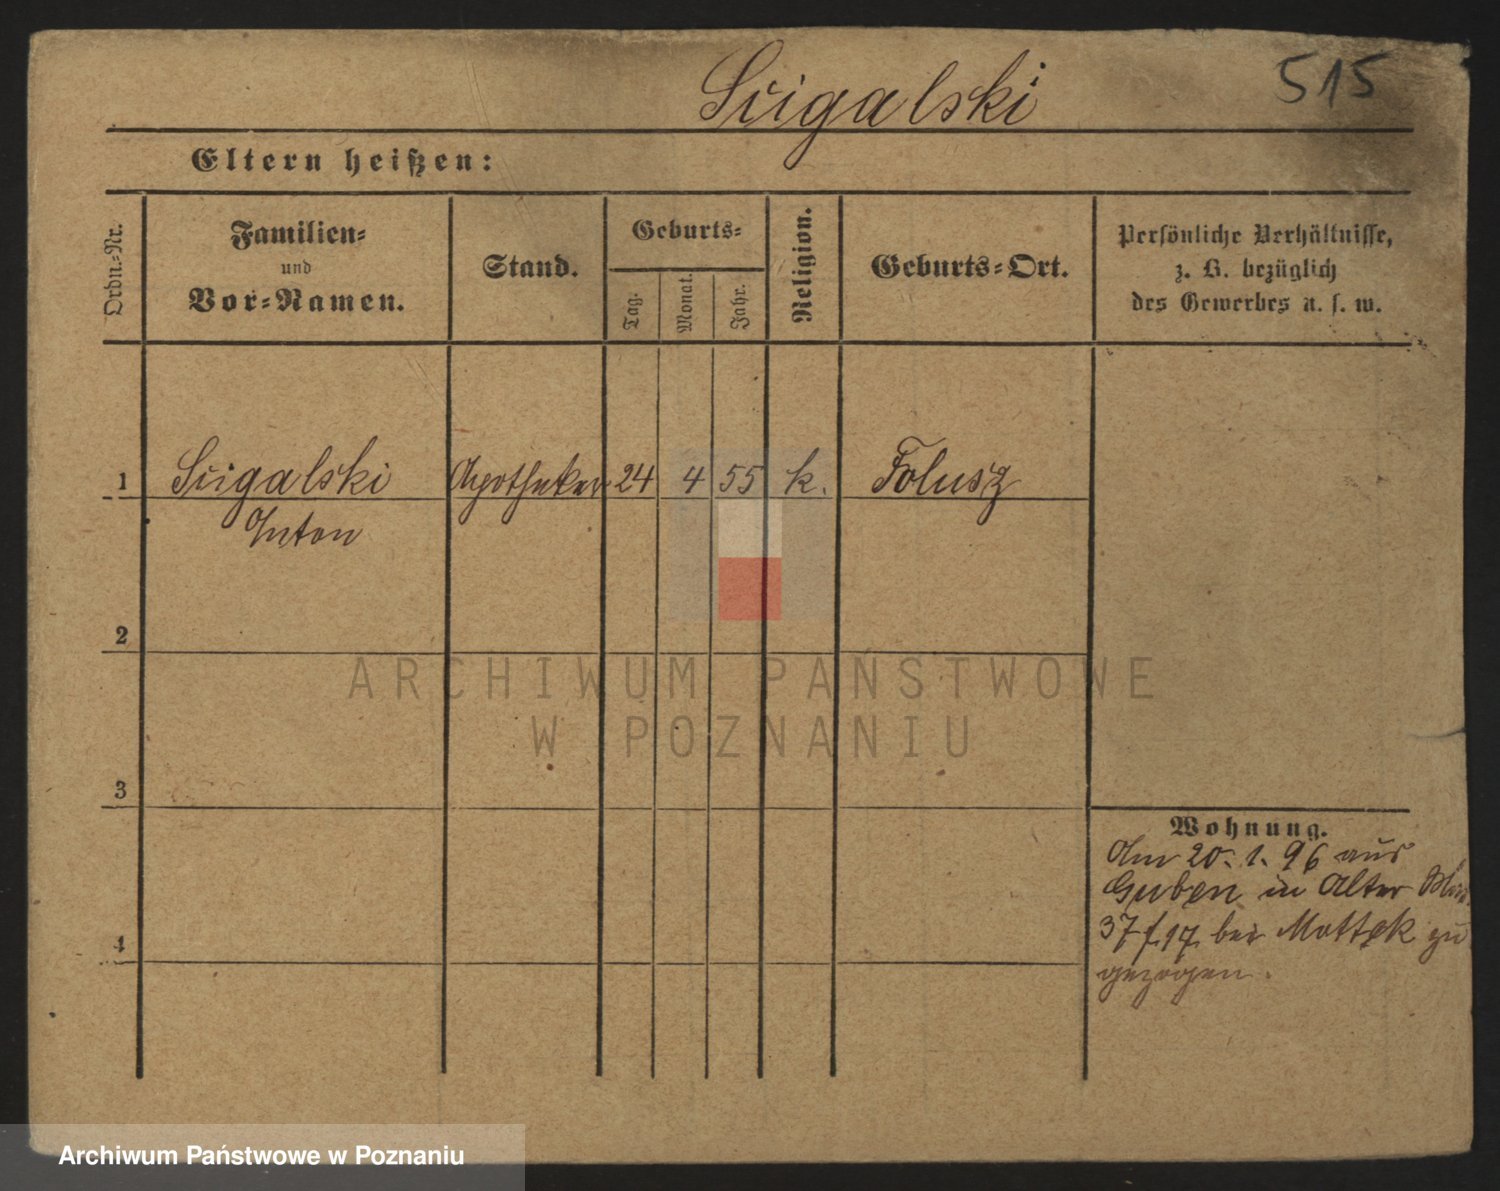 Scigalski
515
Eltern heißen:
Ordn.-Nr.
Familien-
und
Vor-Namen.
Stand.
Geburts-
Tag.
Monat.
Jahr.
Religion.
Geburts-Ort.
Persönliche Verhältnisse,
z. B. bezüglich
des Gewerbes u. s. w.
1 Scigalski Apotheker 24 4 55 k. Folusz
Anton
2
3
4
Wohnung.
Am 20. 1. 96 aus
Guben in Alter
37 f. 17 bei Mottek zu
gezogen.
ARCHIWUM PAŃSTWOWE
W POZNANIU
Archiwum Państwowe w Poznaniu